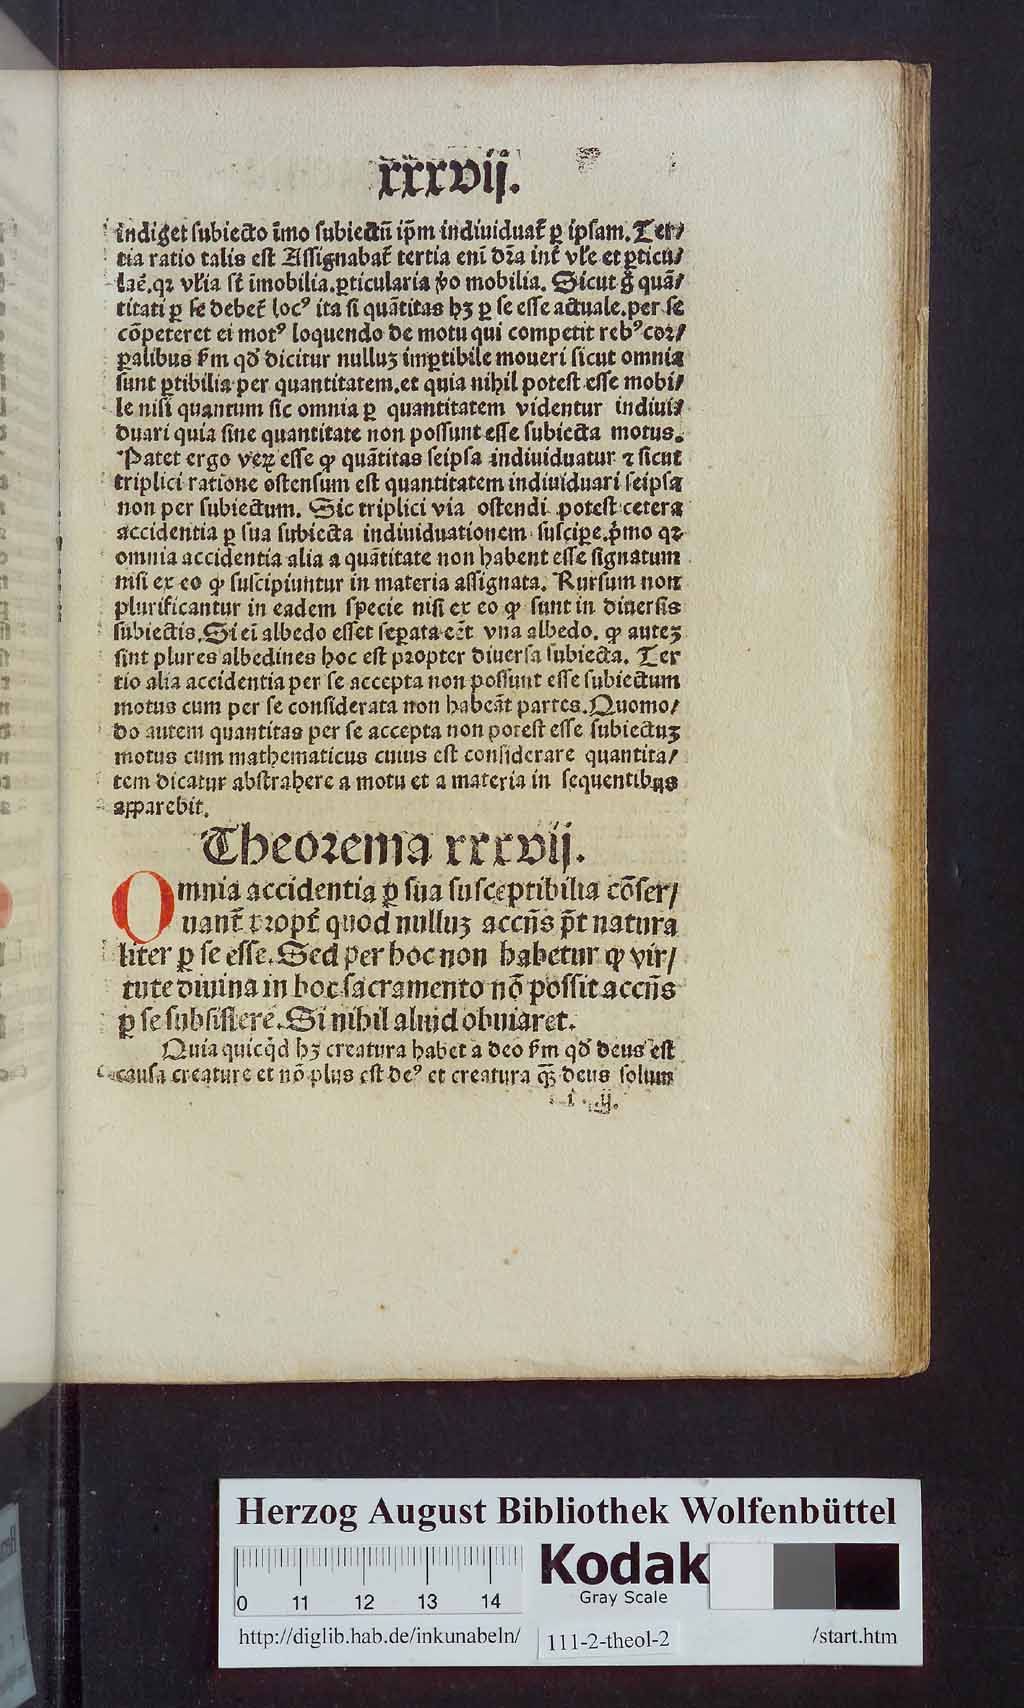 xxxvij.
indiget subiecto īmo subiectū ip̄m indiuiduat̄ ꝑ ipsam. Ter/
tia ratio talis est Assignabat̄ tertia enī dr̄a int̄ vl̄e et ꝑticu/
laē. qꝛ vl̄ia st̄ īmobilia. ꝑticularia v̓o mobilia. Sicut g̊ quā/
titati ꝑ se debet̄ locꝰ ita si quātitas hꝫ ꝑ se esse actuale. per se
cōpeteret ei motꝰ loquendo de motu qui competit rebꝰ coꝛ/
ꝑalibus ẜm qd̄ dicitur nulluꝫ imꝑtibile moueri sicut omnia
sunt ꝑtibilia per quantitatem. et quia nihil potest esse mobi/
le nisi quantum sic omnia ꝑ quantitatem videntur indiui/
duari quia sine quantitate non possunt esse subiecta motus.
Patet ergo veꝝ esse ꝙ quātitas seipsa indiuiduatur ⁊ sicut
triplici ratione ostensum est quantitatem indiuiduari seipsa
non per subiectum. Sic triplici via ostendi potest cetera
accidentia ꝑ sua subiecta indiuiduationem suscipe. p̓mo qꝛ
omnia accidentia alia a quātitate non habent esse signatum
nisi ex eo ꝙ suscipiuntur in materia assignata. Rursum non
plurificantur in eadem specie nisi ex eo ꝙ sunt in diuersis
subiectis. Si ei̅ albedo esset seꝑata eēt vna albedo. ꝙ auteꝫ
sint plures albedines hoc est pꝛopter diuersa subiecta. Ter
tio alia accidentia per se accepta non possunt esse subiectum
motus cum per se considerata non habeāt partes. Quomo/
do autem quantitas per se accepta non potest esse subiectuꝫ
motus cum mathematicus cuius est considerare quantita/
tem dicatur abstrahere a motu et a materia in sequentibus
apparebit.
Theoꝛema xxxvij.
Omnia accidentia ꝑ sua susceptibilia cōser/
uant̄ pꝛopt̄ quod nulluꝫ accn̄s p̄t natura
liter ꝑ se esse. Sed per hoc non habetur ꝙ vir/
tute diuina in hoc sacramento nō possit accn̄s
ꝑ se subsistere. Si nihil aliud obuiaret.
Quia quicq̇d hꝫ creatura habet a deo ẜm qd̄ deus est
causa creature et nō plus est deꝰ et creatura q̄ꝫ deus solum
ij.
Herzog August Bibliothek Wolfenbüttel
0 11 12 13 14
Kodak
Gray Scale
http://diglib.hab.de/inkunabeln/ 111-2-theol-2 /start.htm